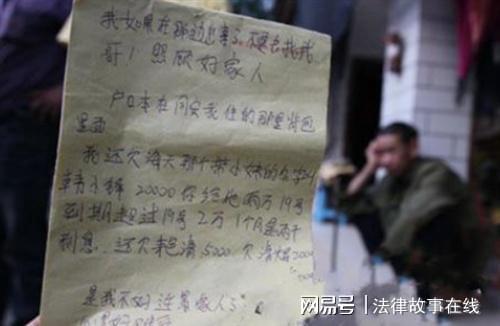 我如果在那边出事了不要去找我
哥！照顾好家人
户口本在同安我住的那里背包
里面
我还欠海天那个带小妹的名字叫
20000你给他两万19号
到期超过19号2万1个月是两千
利息。还欠 清5000欠清
是我不好连累家人了！
网易号 法律故事在线